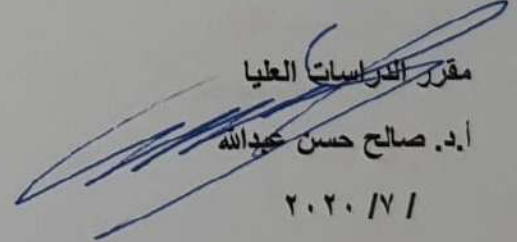 مقرر الدراسات العليا
أ.د. صالح حسن عبدالله
/ ٧/ ٢٠٢٠